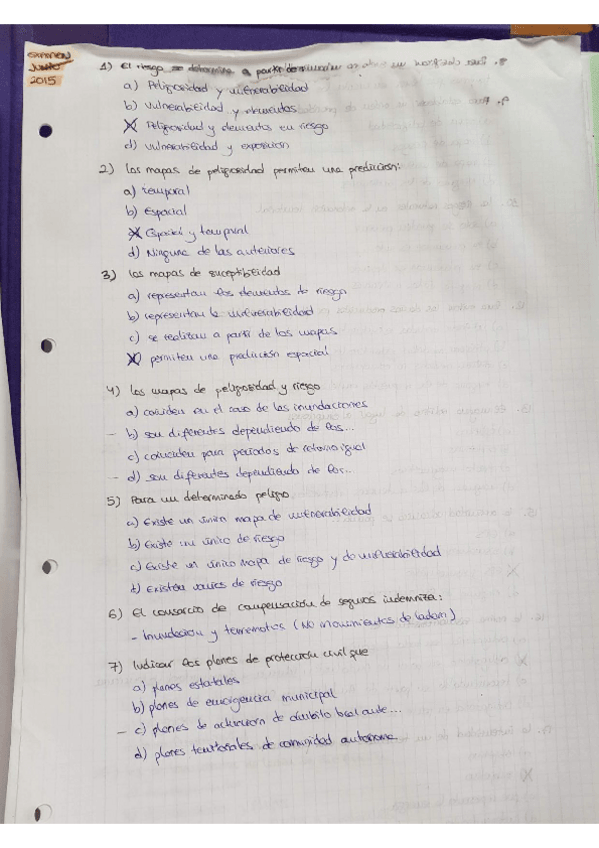 EXAMEN
JUNIO
2015
1) El riesgo se determina a partir de
a) Peligrosidad y vulnerabilidad
b) Vulnerabilidad y elementos
c) Peligrosidad y elementos en riesgo
d) Vulnerabilidad y exposición
2) Los mapas de peligrosidad permiten una predicción:
a) temporal
b) Espacial
c) Espacial y temporal
d) Ninguna de las anteriores
3) Los mapas de suceptibilidad
a) representan los elementos de riesgo
b) representan la vulnerabilidad
c) se realizan a partir de los mapas
d) permiten una predicción espacial
4) Los mapas de peligrosidad y riesgo
a) coinciden en el caso de las inundaciones
- b) son diferentes dependiendo de los...
c) coinciden para periodos de retorno igual
- d) son diferentes dependiendo de los...
5) Para un determinado peligro
a) Existe un único mapa de vulnerabilidad
b) Existe un único de riesgo
c) Existe un único mapa de riesgo y de vulnerabilidad
d) Existen varios de riesgo
6) El consorcio de compensación de seguros indemniza:
- Inundación y terremotos (No movimientos de ladera)
7) Indicar los planes de protección civil que
a) planes estatales
b) planes de emergencia municipal
- c) planes de actuación de ámbito local ante...
d) planes territoriales de comunidad autónoma